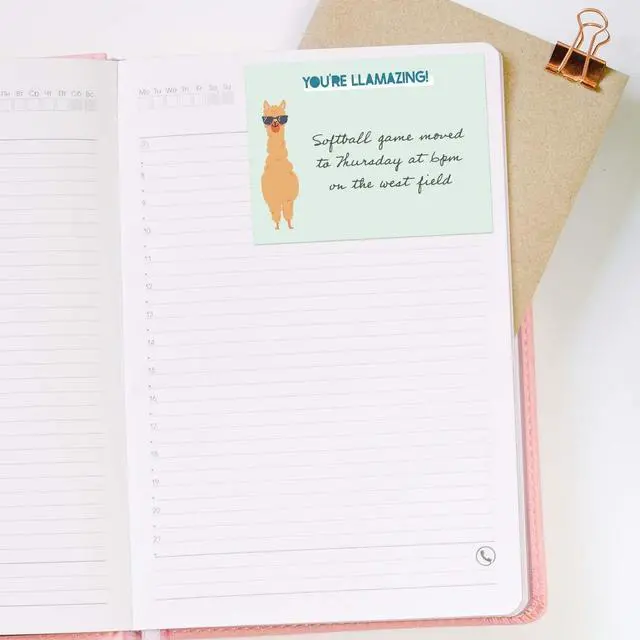 Пн Вт Ср Чт Пт Сб Вс
Mo Tu We Th Fr Sa Su
YOU'RE LLAMAZING!
Softball game moved
to Thursday at 6pm
on the west field
8
9
10
11
12
13
14
15
16
17
18
19
20
21